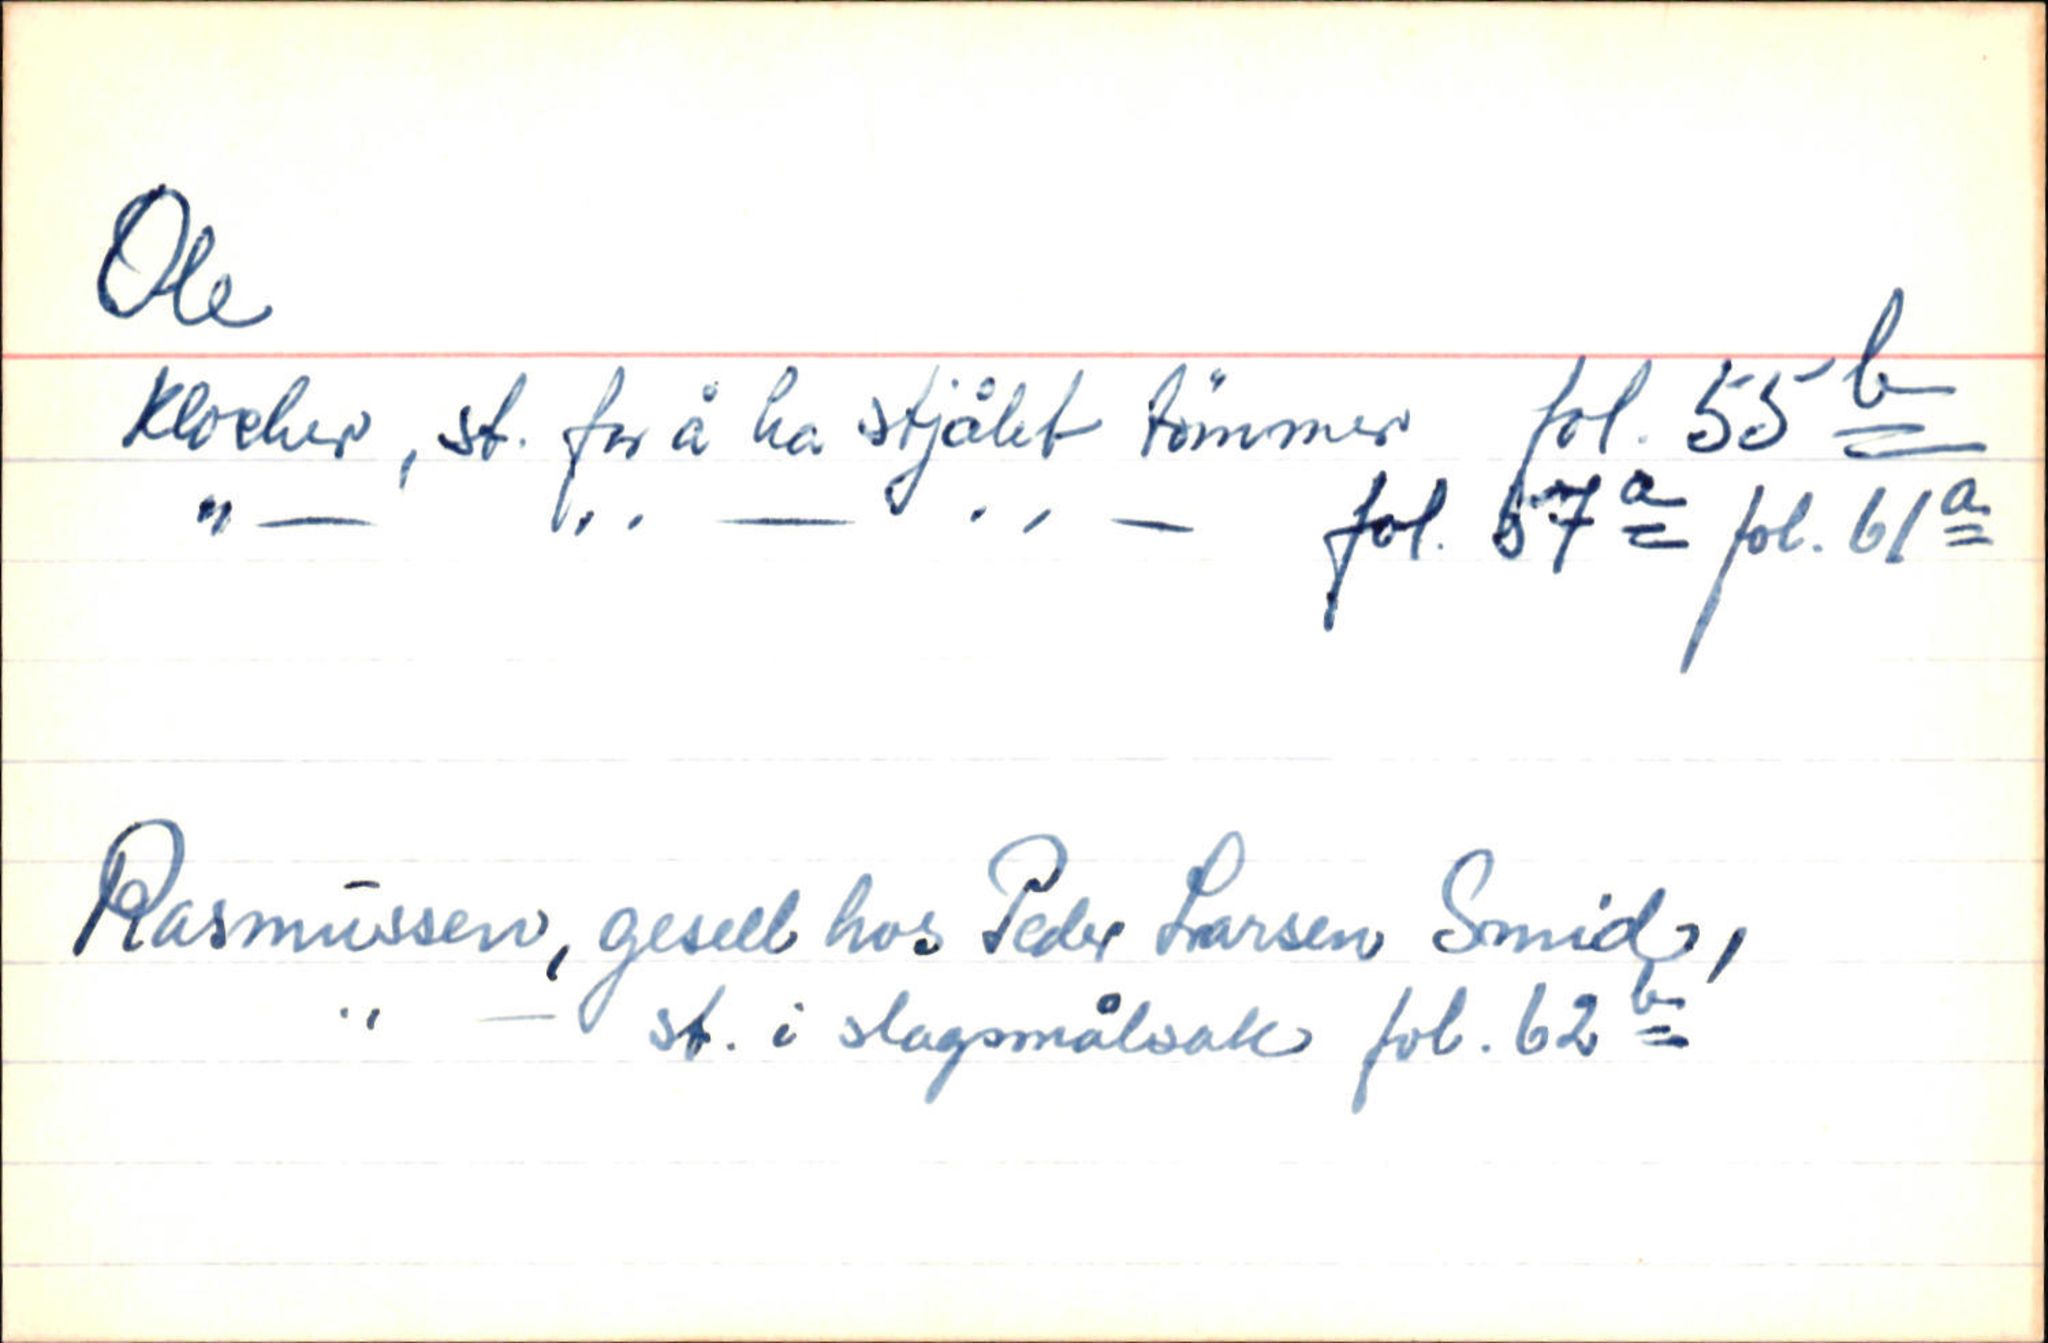 Ole
Klocher, st. for å ha stjålet tömmer fol. 55 b
" — " — " — fol. 57 a fol. 61 a
Rasmussen, gesell hos Peder Larsen Smid,
" — st. i slagsmålsak fol. 62 b